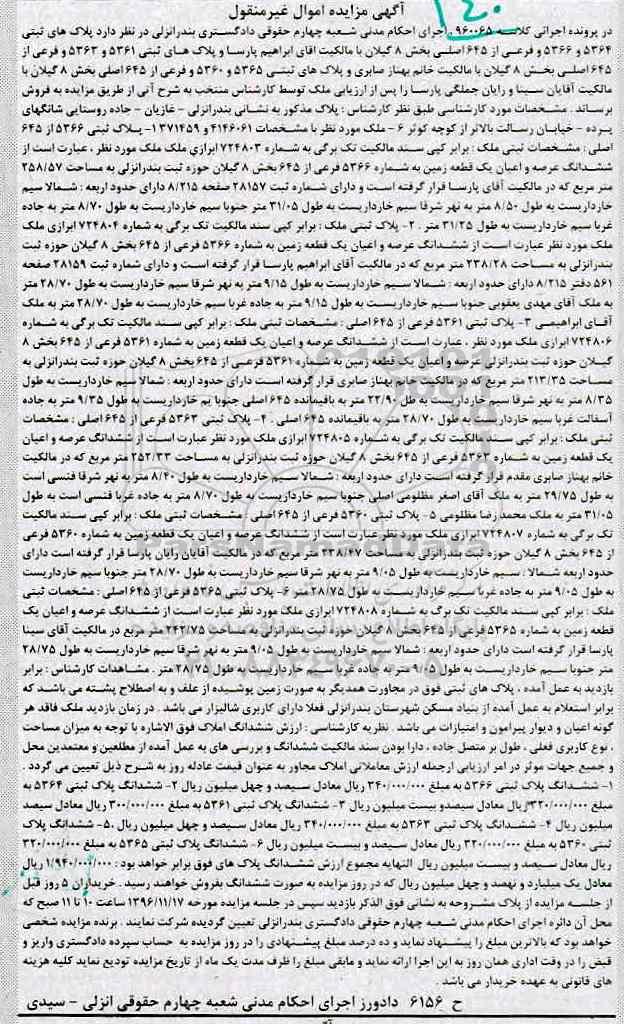 آگهی مزایده اموال غیرمنقول
در پرونده اجرائی کلاسه ۹۶۰۰۶۵ اجرای احکام مدنی شعبه چهارم حقوقی دادگستری بندرانزلی در نظر دارد پلاک های ثبتی
۵۳۶۴ و ۵۳۶۶ و فرعی از ۶۴۵ اصلی بخش ۸ گیلان با مالکیت اقای ابراهیم پارسا و پلاک های ثبتی ۵۳۶۱ و ۵۳۶۳ و فرعی از
۶۴۵ اصلی بخش ۸ گیلان با مالکیت خانم بهناز صابری و پلاک های ثبتی ۵۳۶۵ و ۵۳۶۰ و فرعی از ۶۴۵ اصلی بخش ۸ گیلان با
مالکیت آقایان سینا و رایان جملگی پارسا را پس از ارزیابی ملک توسط کارشناس منتخب به شرح آتی از طریق مزایده به فروش
برساند . مشخصات مورد کارشناسی طبق نظر کارشناس : پلاک مذکور به نشانی بندرانزلی - غازیان - جاده روستایی شانگهای
پرده - خیابان رسالت بالاتر از کوچه کوثر ۶ - ملک مورد نظر با مشخصات ۴۱۴۶۰۶۱ و ۳۷۱۴۵۹ ۱- پلاک ثبتی ۵۳۶۶ از ۶۴۵
اصلی : مشخصات ثبتی ملک : برابر کپی سند مالکیت تک برگی به شماره ۷۲۴۸۰۳ ابرازی ملک ملک مورد نظر ، عبارت است از
ششدانگ عرصه و اعیان یک قطعه زمین به شماره ۵۳۶۶ فرعی از ۶۴۵ بخش ۸ گیلان حوزه ثبت بندرانزلی به مساحت ۲۵۸/۵۷
متر مربع که در مالکیت آقای پارسا قرار گرفته است و دارای شماره ثبت ۲۸۱۵۷ صفحه ۸/۲۱۵ دارای حدود اربعه : شمالا سیم
خارداریست به طول ۸/۵۰ متر به نهر شرقا سیم خارداریست به طول ۳۱/۰۵ متر جنوبا سیم خارداریست به طول ۸/۷۰ متر به جاده
غربا سیم خارداریست به طول ۳۱/۲۵ متر . ۲- پلاک ثبتی ملک : برابر کپی سند مالکیت تک برگی به شماره ۷۲۴۸۰۴ ابرازی ملک
ملک مورد نظر عبارت است از ششدانگ عرصه و اعیان یک قطعه زمین به شماره ۵۳۶۶ فرعی از ۶۴۵ بخش ۸ گیلان حوزه ثبت
بندرانزلی به مساحت ۲۳۸/۲۸ متر مربع که در مالکیت آقای ابراهیم پارسا قرار گرفته است و دارای شماره ثبت ۲۸۱۵۹ صفحه
۵۶۱ دفتر ۸/۲۱۵ دارای حدود اربعه : شمالا سیم خارداریست به طول ۹/۱۵ متر به نهر شرقا سیم خارداریست به طول ۲۸/۷۰ متر
به ملک آقای مهدی یعقوبی جنوبا سیم خارداریست به طول ۹/۱۵ متر به جاده غربا سیم خارداریست به طول ۲۸/۷۰ متر به ملک
آقای ابراهیمی ۳- پلاک ثبتی ۵۳۶۱ فرعی از ۶۴۵ اصلی : مشخصات ثبتی ملک : برابر کپی سند مالکیت تک برگی به شماره
۷۲۴۸۰۶ ابرازی ملک مورد نظر ، عبارت است از ششدانگ عرصه و اعیان یک قطعه زمین به شماره ۵۳۶۱ فرعی از ۶۴۵ بخش ۸
گیلان حوزه ثبت بندرانزلی عرصه و اعیان یک قطعه زمین به شماره ۵۳۶۱ فرعی از ۶۴۵ بخش ۸ گیلان حوزه ثبت بندرانزلی به
مساحت ۲۱۳/۳۵ متر مربع که در مالکیت خانم بهناز صابری قرار گرفته است دارای حدود اربعه : شمالا سیم خارداریست به طول
۸/۳۵ متر به نهر شرقا سیم خارداریست به طل ۲۲/۹۰ متر به باقیمانده ۶۴۵ اصلی جنوبا یم خازداریست به طول ۹/۳۵ متر به جاده
آسفالت غربا سیم خارداریست به طول ۲۸/۷۰ متر به باقیمانده ۶۴۵ اصلی . ۴- پلاک ثبتی ۵۳۶۳ فرعی از ۶۴۵ اصلی : مشخصات
ثبتی ملک : برابر کپی سند مالکیت تک برگی به شماره ۷۲۴۸۰۵ ابرازی ملک مورد نظر عبارت است از ششدانگ عرصه و اعیان
یک قطعه زمین به شماره ۵۳۶۳ فرعی از ۶۴۵ بخش ۸ گیلان حوزه ثبت بندرانزلی به مساحت ۲۵۲/۳۳ متر مربع که در مالکیت
خانم بهناز صابری مقدم قرار گرفته است دارای حدود اربعه : شمالا سیم خارداریست به طول ۸/۴۰ متر به نهر شرقا فنسی است
به طول ۲۹/۷۵ متر به ملک آقای اصغر مظلومی اصلی جنوبا سیم خارداریست به طول ۸/۷۰ متر به جاده غربا فنسی است به طول
۳۱/۰۵ متر به ملک محمد رضا مظلومی ۵- پلاک ثبتی ۵۳۶۰ فرعی از ۶۴۵ اصلی مشخصات ثبتی ملک : برابر کپی سند مالکیت
تک برگی به شماره ۷۲۴۸۰۷ ابرازی ملک مورد نظر عبارت است از ششدانگ عرصه و اعیان یک قطعه زمین به شماره ۵۳۶۰ فرعی
از ۶۴۵ بخش ۸ گیلان حوزه ثبت بندرانزلی به مساحت ۲۳۸/۴۷ متر مربع که در مالکیت آقایان رایان پارسا قرار گرفته است دارای
حدود اربعه شمالا : سیم خارداریست به طول ۹/۰۵ متر به نهر شرقا سیم خارداریست به طول ۲۸/۷۰ متر جنوبا سیم خارداریست
به طول ۹/۰۵ متر به جاده غربا سیم خارداریست به طول ۲۸/۷۵ متر ۶- پلاک ثبتی ۵۳۶۵ فرعی از ۶۴۵ اصلی : مشخصات ثبتی
ملک : برابر کپی سند مالکیت تک برگ به شماره ۷۲۴۸۰۸ ابرازی ملک مورد نظر عبارت است از ششدانگ عرصه و اعیان یک
قطعه زمین به شماره ۵۳۶۵ فرعی از ۶۴۵ بخش ۸ گیلان حوزه ثبت بندرانزلی به مساحت ۲۴۲/۷۵ متر مربع در مالکیت آقای سینا
پارسا قرار گرفته است دارای حدود اربعه : شمالا سیم خارداریست به طول ۹/۰۵ متر به نهر شرقا سیم خارداریست به طول ۲۸/۷۵
متر جنوبا سیم خارداریست به طول ۹/۰۵ متر به جاده غربا سیم خارداریست به طول ۲۸/۷۵ متر . مشاهدات کارشناس : برابر
بازدید به عمل آمده ، پلاک های ثبتی فوق در مجاورت همدیگر به صورت زمین پوشیده از علف و به اصطلاح پشته می باشد که
برابر استعلام به عمل آمده از بنیاد مسکن شهرستان بندرانزلی فعلا دارای کاربری شالیزار می باشد . در زمان بازدید ملک فاقد هر
گونه اعیان و دیوار پیرامون و امتیازات می باشد . نظریه کارشناسی : ارزش ششدانگ املاک فوق الاشاره با توجه به میزان مساحت
، نوع کاربری فعلی ، طول بر متصل جاده ، دارا بودن سند مالکیت ششدانگ و بررسی های به عمل آمده از مطلعین و معتمدین محل
و جمیع جهات موثر در امر ارزیابی ازجمله ارزش معاملاتی املاک مجاور به عنوان قیمت عادله روز به شرح ذیل تعیین می گردد .
۱- ششدانگ پلاک ثبتی ۵۳۶۶ به مبلغ ۳۴۰/۰۰۰/۰۰۰ ریال معادل سیصد و چهل میلیون ریال ۲- ششدانگ پلاک ثبتی ۵۳۶۴ به
مبلغ ۳۲۰/۰۰۰/۰۰۰ ریال معادل سیصدو بیست میلیون ریال ۳- ششدانگ پلاک ثبتی ۵۳۶۱ به مبلغ ۳۰۰/۰۰۰/۰۰۰ ریال معادل سیصد
میلیون ریال ۴- ششدانگ پلاک ثبتی ۵۳۶۳ به مبلغ ۳۴۰/۰۰۰/۰۰۰ ریال معادل سیصد و چهل میلیون ریال ۵- ششدانگ پلاک
ثبتی ۵۳۶۰ به مبلغ ۳۲۰/۰۰۰/۰۰۰ ریال معادل سیصد و بیست میلیون ریال ۶- ششدانگ پلاک ثبتی ۵۳۶۵ به مبلغ ۳۲۰/۰۰۰/۰۰۰
ریال معادل سیصد و بیست میلیون ریال النهایه مجموع ارزش ششدانگ پلاک های فوق برابر خواهد بود : ۱/۹۴۰/۰۰۰/۰۰۰ ریال
معادل یک میلیارد و نهصد و چهل میلیون ریال که در روز مزایده به صورت ششدانگ بفروش خواهند رسید . خریداران ۵ روز قبل
از جلسه مزایده از پلاک مشروحه به نشانی فوق الذکر بازدید سپس در جلسه مزایده مورخه ۱۳۹۶/۱۱/۱۷ ساعت ۱۰ تا ۱۱ صبح که
محل آن دائره اجرای احکام مدنی شعبه چهارم حقوقی دادگستری بندرانزلی تعیین گردیده شرکت نمایند . برنده مزایده شخصی
خواهد بود که بالاترین مبلغ را پیشنهاد نماید و ده درصد مبلغ پیشنهادی را در روز مزایده به حساب سپرده دادگستری واریز و
قبض را در وقت اداری همان روز به این اجرا ارائه نماید و مابقی مبلغ را ظرف مدت یک ماه از تاریخ مزایده تودیع نماید کلیه هزینه
های قانونی به عهده خریدار می باشد .
ح ۶۱۵۶ دادورز اجرای احکام مدنی شعبه چهارم حقوقی انزلی - سیدی